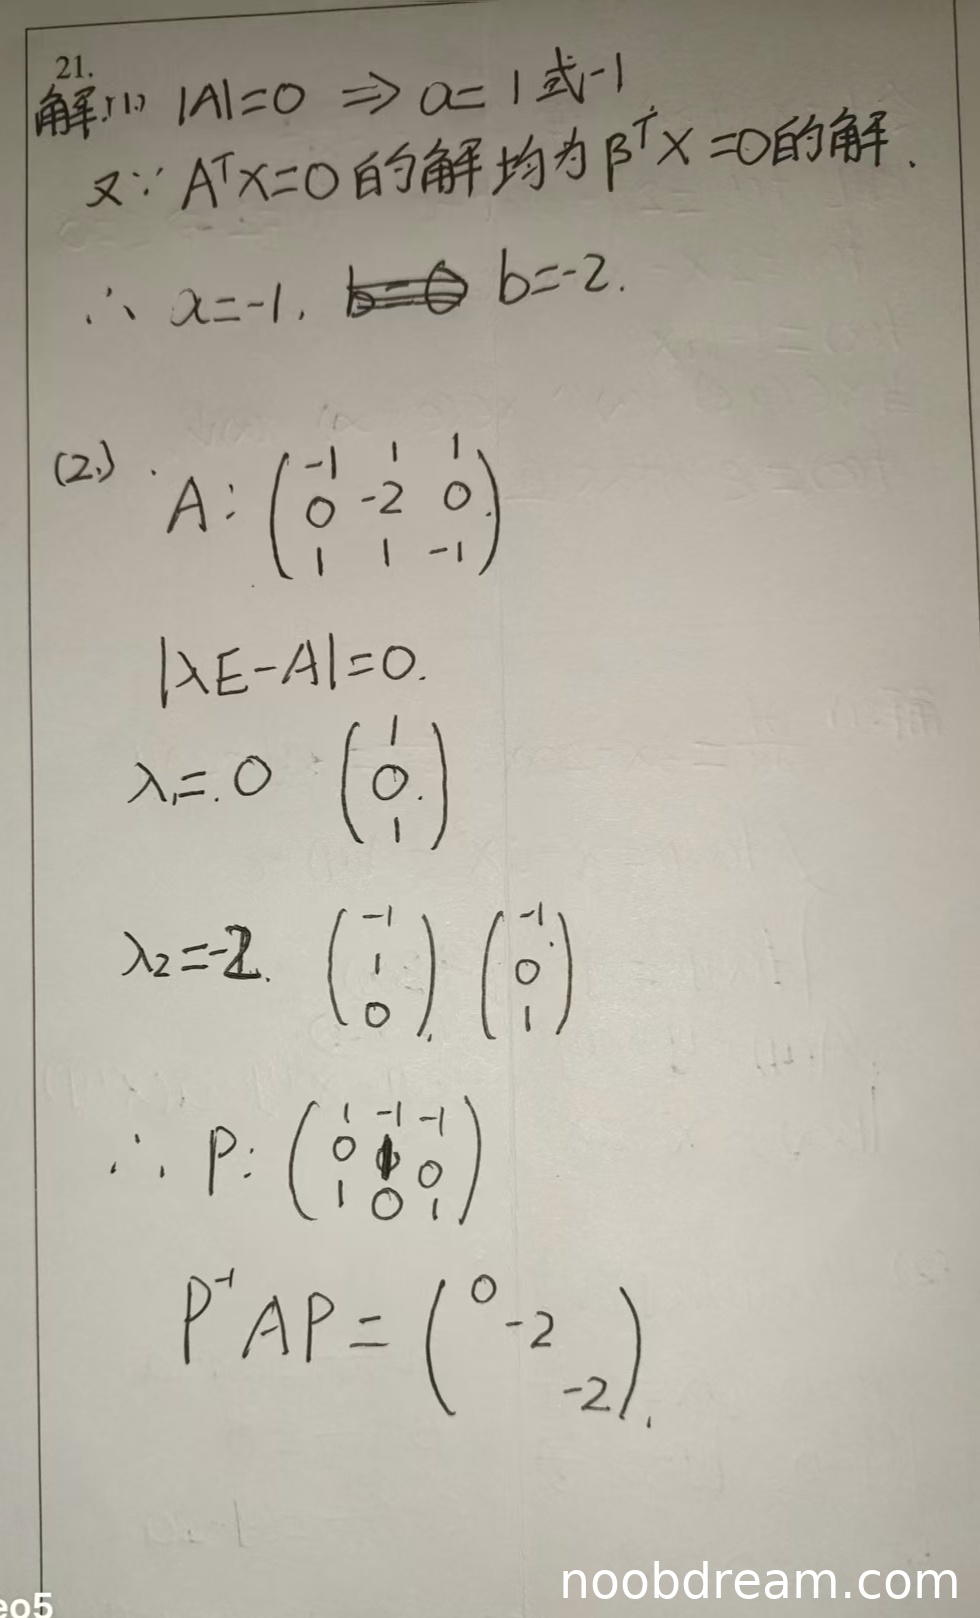 21.
解:(1) |A|=0 ⇒ a=1或-1
又∵ AᵀX=0的解均为βᵀX=0的解.
∴ a=-1, b=-2.
(2.) A: ( -1 1 1
0 -2 0
1 1 -1 )
|λE-A|=0.
λ₁=0 ( 1
0
1 )
λ₂=-2. ( -1 1 0 ) ( -1 0 1 )
∴ P: ( 1 -1 -1
0 1 0
1 0 1 )
P⁻¹AP = ( 0
-2
-2 ).
eo5
noobdream.com